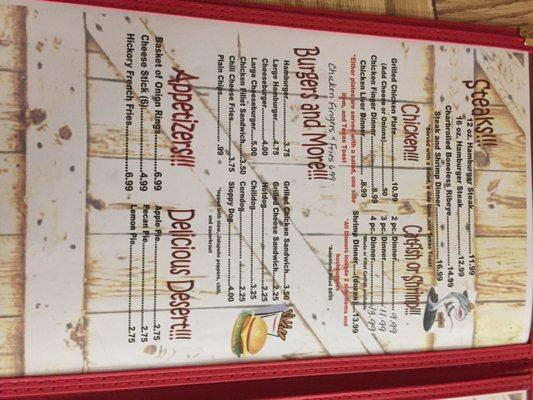 Steaks!!!
12 oz. Hamburger Steak..............11.99
16 oz. Hamburger Steak..............12.99
Charbroiled Boneless Ribeye............14.99
Steak and Shrimp Dinner................16.99
*Served with a Salad, a side item and Texas Toast
Chicken!!!
Grilled Chicken Plate..............10.99
(Add Cheese or Onions).............50
Chicken Finger Dinner...........8.99
Chicken Liver Dinner.............8.50
*Either plates are served with a salad, one side
item, and Texas Toast
Catfish or Shrimp!!!
2 pc. Dinner 9.99
3 pc. Dinner 11.99
4 pc. Dinner 13.99
Shrimp Dinner.....(dozen).13.99
*All Dinners include 2 side items and
hushpuppies
Burgers and More!!!
Chicken Fingers & Fries 6.99
Hamburger.......3.75
Large Hamburger....4.75
Cheeseburger.........4.00
Large Cheeseburger...5.00
Chicken Fillet Sandwich....3.50
Chili Cheese Fries.......3.75
Plain Chips..........99
Grilled Chicken Sandwich....3.50
Grilled Cheese Sandwich..2.25
Hotdog..................2.25
Chilidog................3.25
Corndog................2.25
Sloppy Dog............4.00
*topped with slaw, jalapeño peppers, chili,
and sauerkraut
Appetizers!!!
Basket of Onion Rings..........6.99
Cheese Stick (6)...............4.99
Hickory French Fries............6.99
Delicious Desert!!!
Apple Pie..................2.75
Pecan Pie.................2.75
Lemon Pie.................2.75